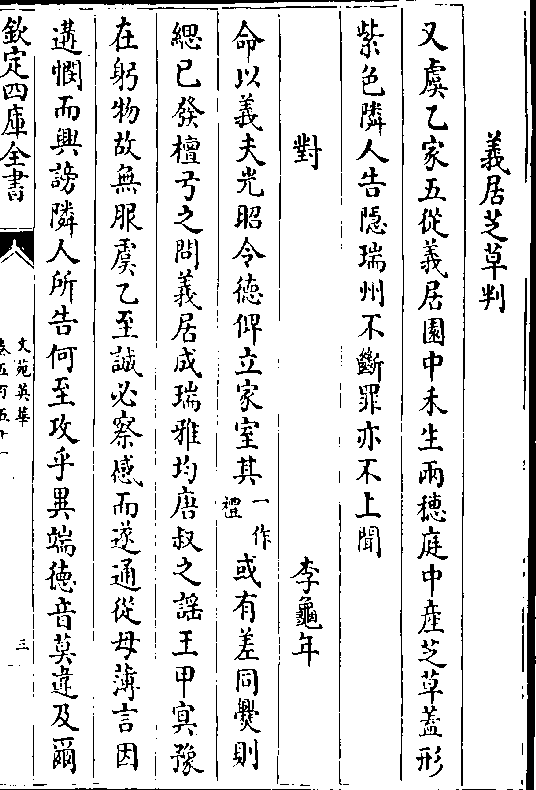 義居芝草判
又虞乙家五從義居園中禾生兩穗庭中產芝草蓋形
紫色隣人告隱瑞州不斷罪亦不上聞
對　李龜年
命以義夫光昭令德俾立家室其一作禮或有差同爨則
緦已發檀弓之問義居成瑞雅均唐叔之謡王甲寘豫
在躬物故無服虞乙至誠必察感而遂通從母薄言因
遘憫而興謗隣人所告何至攻乎異端德音莫違及爾
欽定四庫全書
文苑英華
卷五百五十一
三